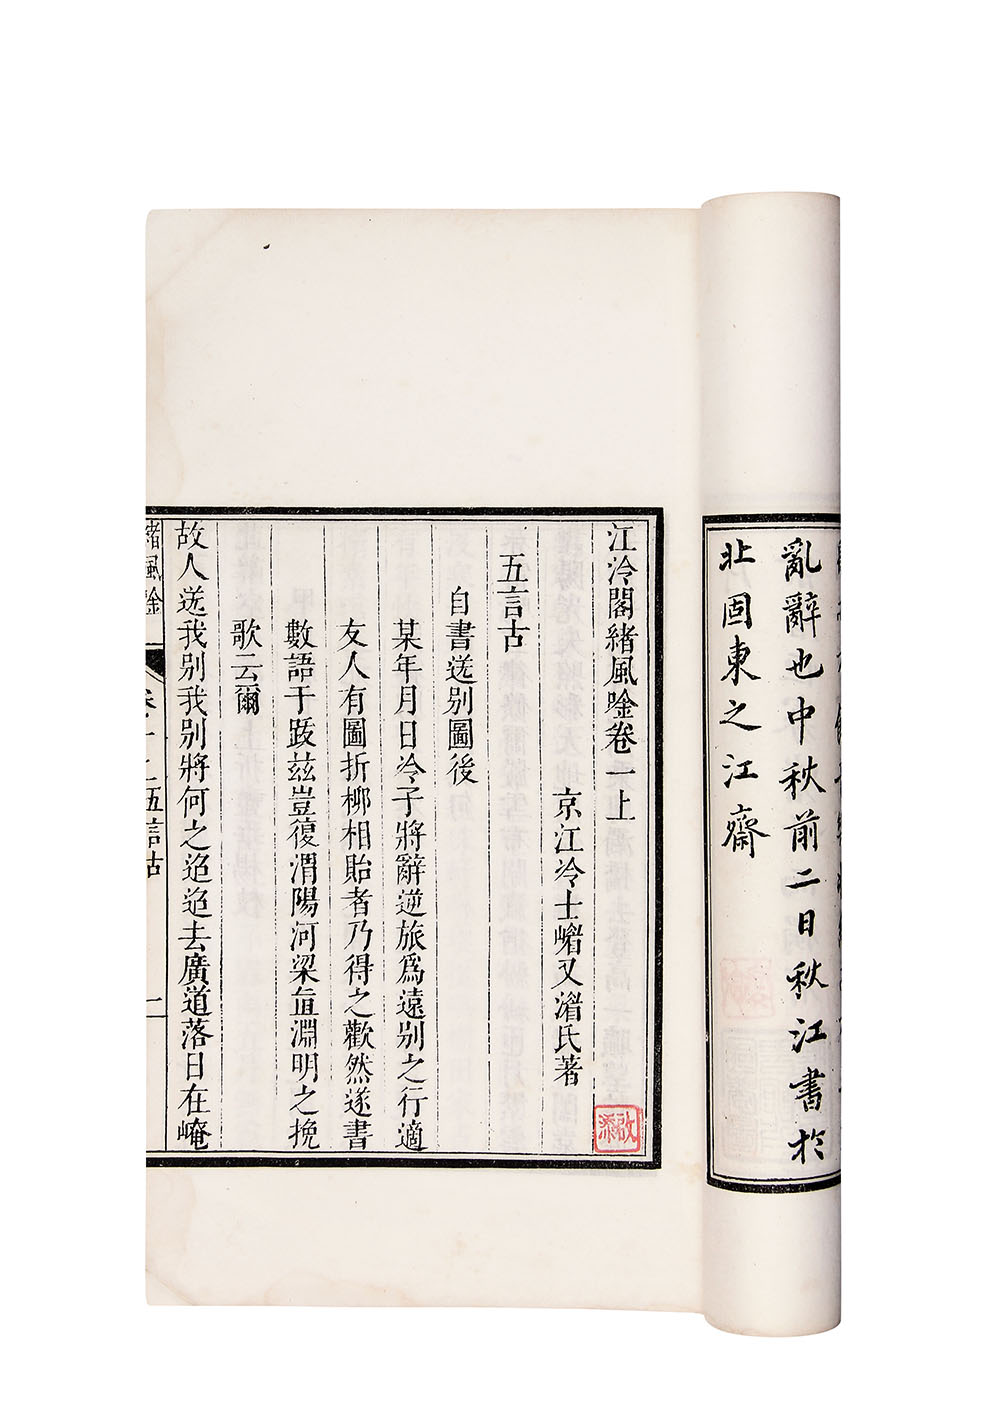 亂辭也中秋前二日秋江書於
北固東之江齋
江泠閣緒風唫卷一上
京江冷士嵋又湄氏著
五言古
自書送別圖後
某年月日冷子將辭逆旅為遠別之行適
友人有圖折柳相貽者乃得之歡然遂書
數語于跋茲豈復渭陽河梁並淵明之挽
歌云爾
故人送我別我別將何之迢迢去廣道落日在崦
緒風唫
五言古
一